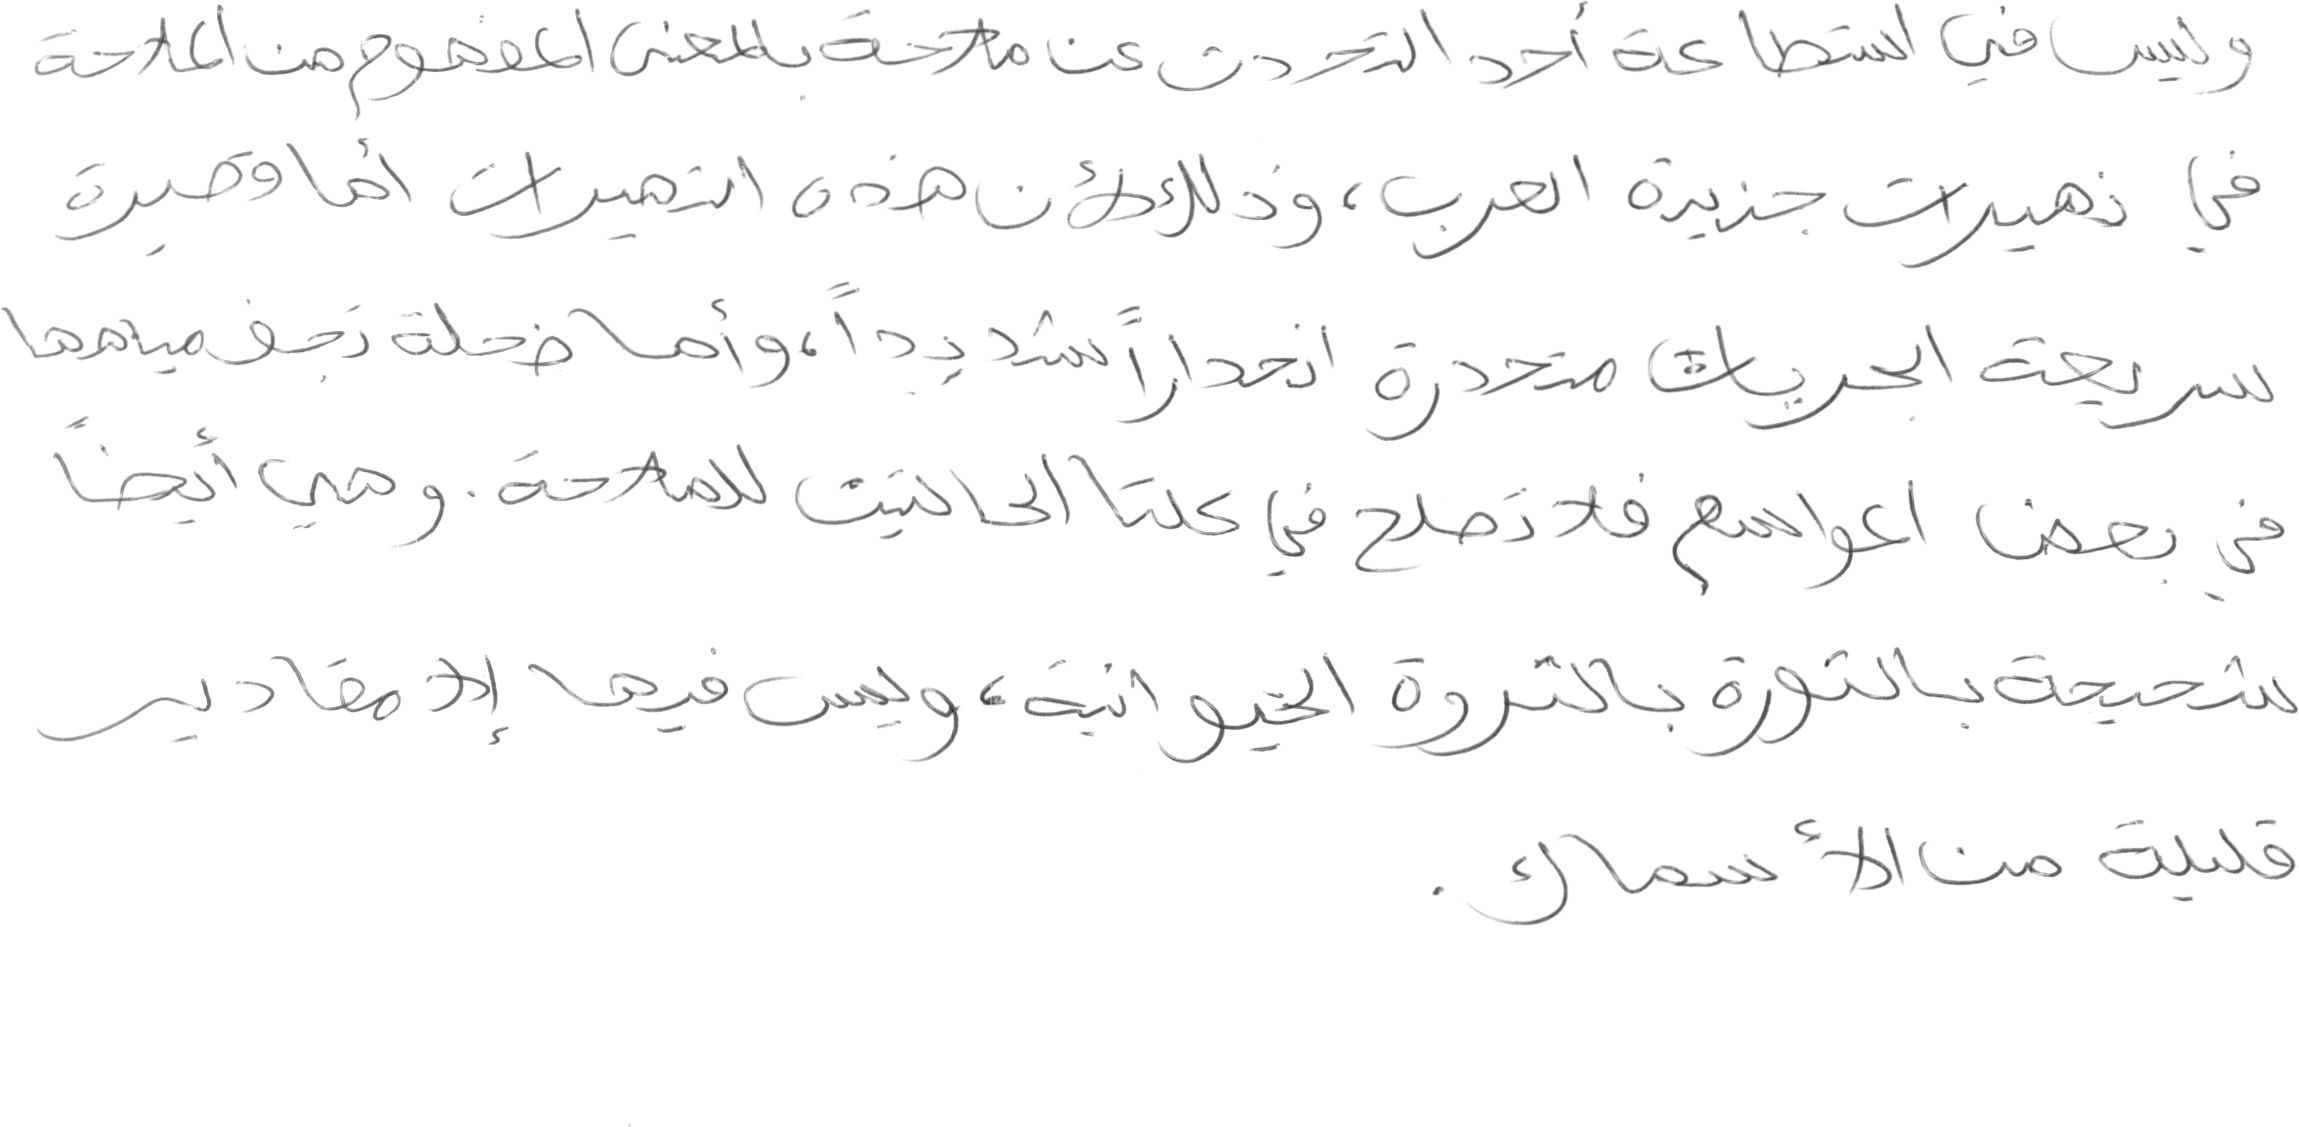 وليس في استطاعة أحد التحدث عن ملاحة بالمعنى المفهوم من الملاحة
في نهيرات جزيرة العرب، وذلك لأن هذه النهيرات اما قصيرة
سريعة الجريان متحدرة انحداراً شديداً، وأما ضحلة تجف مياهها
في بعض المواسم فلا تصلح في كلتا الحالتين للملاحة. وهي أيضاً
شحيحة بالثورة بالثروة الحيوانية، وليس فيها إلا مقادير
قليلة من الأسماك.